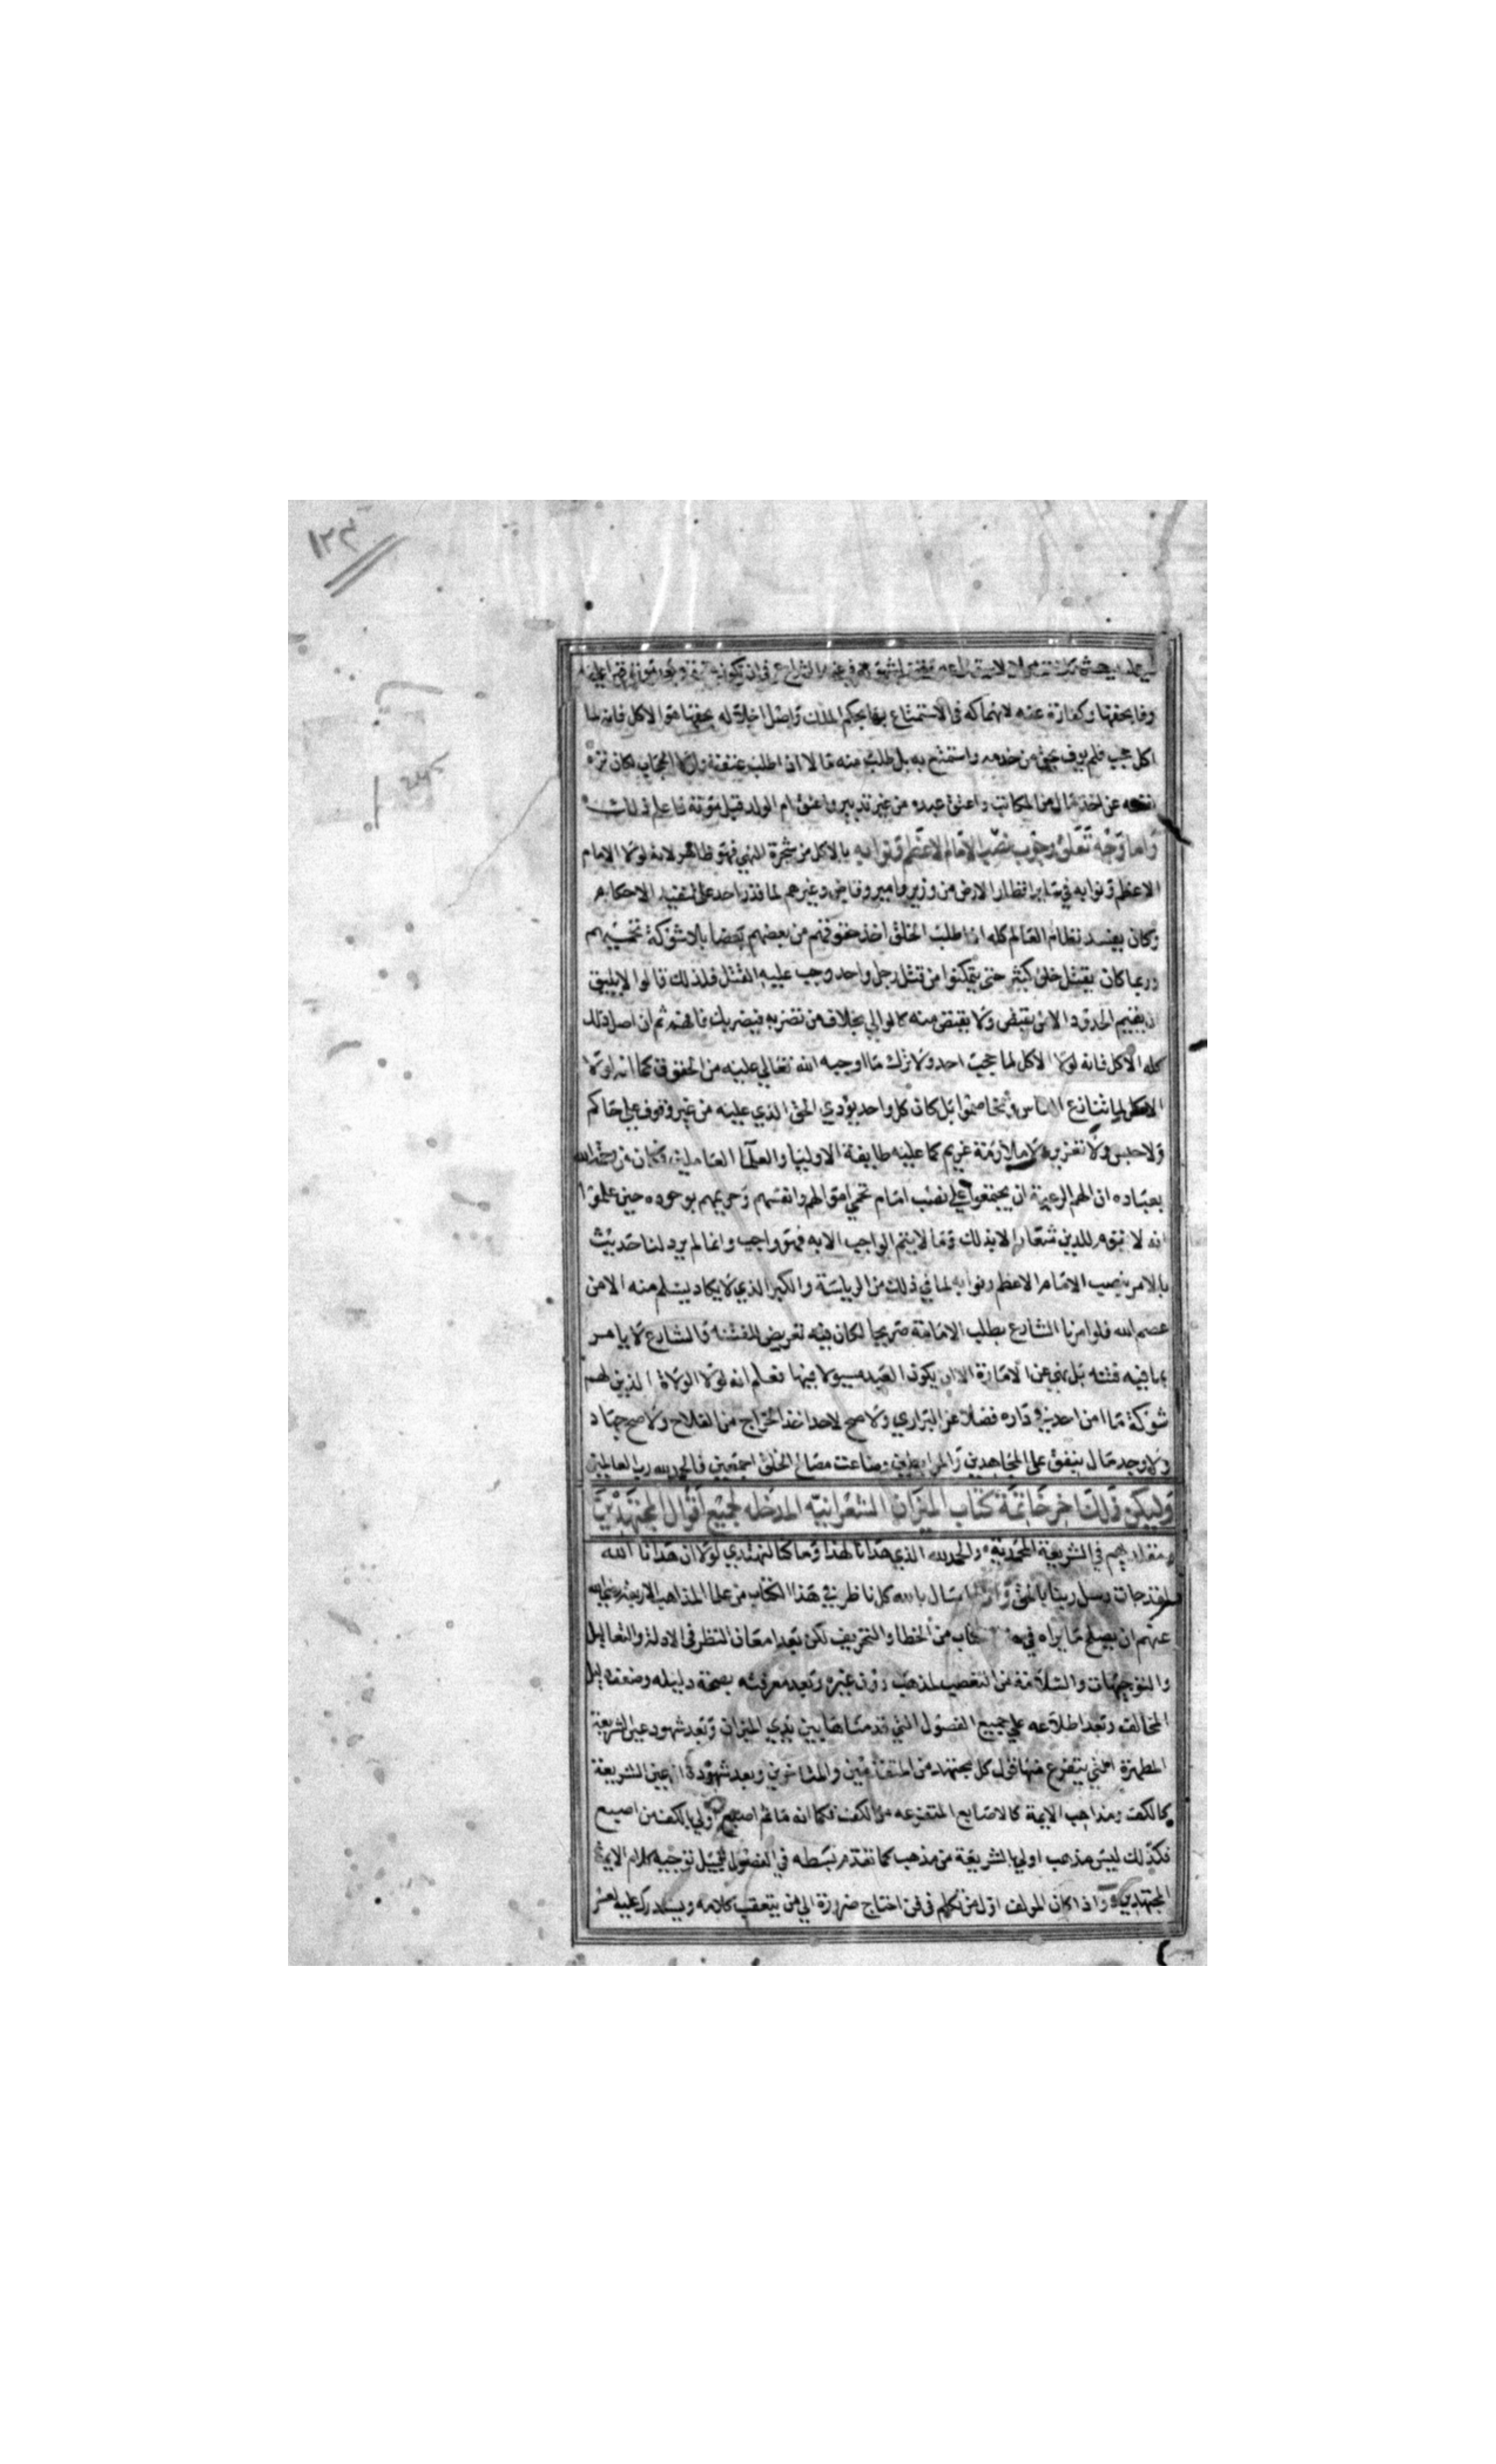 ١٢٤
وفا بحقها وكفارة عنه لانهماكه في الاستمتاع بها بحكم الملك واصل اخلاله بحقها هو الاكل فانه لما
اكل حجب فلم يوف بحق من خدمه واستمتع به بل طلب منه مالا ان اطلب عتقه ولولا الحجاب لكان نزه
نفسه عن اخذ مال من المكاتب واعتق عبده من غير تدبير واعتق ام الولد قبل موته فاعلم ذلك
واما وجه تعلق وجوب نصب الامام الاعظم ونوابه بالاكل من شجرة النهي فهو ظاهر لانه لولا الامام
الاعظم ونوابه في ساير اقطار الارض من وزير وامير وقاض وغيرهم لما قدر احد على تنفيذ الاحكام
وكان يفسد نظام العالم كله اذا طلب الخلق اخذ حقوقهم من بعضهم بعضا بلا شوكة تحميهم
وربما كان يقتل خلق كثير حتى يتمكنوا من قتل رجل واحد وجب عليه القتل فلذلك قالوا لا يليق
ان يقيم الحدود الا من يقتص ولا يقتص منه كالوالي بخلاف من تضربه فيضربك فافهم ثم ان اصل ذلك
كله الاكل فانه لولا الاكل لما حجب احد ولا ترك ما اوجبه الله تعالى عليه من الحقوق كما انه لولا
الاكل لما تنازع الناس وتخاصموا بل كان كل واحد يؤدي الحق الذي عليه من غير وقوف على حاكم
ولا حبس ولا تعزير ولا ملازمة غريم كما عليه طايفة الاوليا والعلما العاملين فكان من رحمة الله
بعباده ان الهم الرعية ان يجتمعوا على نصب امام تحمي اموالهم وانفسهم وحريمهم بوجوده حين علموا
انه لا تقوم للدين شعار الا بذلك وما لا يتم الواجب الا به فهو واجب وانما لم يرد لنا حديث
بالامر بنصب الامام الاعظم ونوابه لما في ذلك من الرياسة والكبر الذي لا يكاد يسلم منه الا من
عصم الله فلو امرنا الشارع بطلب الامامة صريحا لكان فيه تعريض للفتنة والشارع لا يامر
بما فيه فتنة بل نهى عن الامارة الا ان يكون العبد مسيولا فيها فعلم انه لولا الولاة الذين لهم
شوكة ما امن احد في داره فضلا عن البراري ولا صح لاحد اخذ الخراج من الفلاح ولا صح جهاد
ولا وجد مال ينفق على المجاهدين والمرابطين وضاعت مصالح الخلق اجمعين فالحمد لله رب العالمين
وليكن ذلك اخر خاتمة كتاب الميزان الشعرانية المدخلة لجميع اقوال المجتهدين
ومقلديهم في الشريعة المحمدية والحمد لله الذي هدانا لهذا وما كنا لنهتدي لولا ان هدانا الله
لقد جات رسل ربنا بالحق وانا اسال بالله كل ناظر في هذا الكتاب من علما المذاهب الاربعة رضي الله
عنهم ان يصلح ما يراه في هذا الكتاب من الخطا والتحريف لكن بعد امعان النظر في الادلة والتعاليل
والتوجيهات والسلامة من التعصب لمذهب دون غيره وبعد معرفته بصحة دليله وضعف دليل
المخالف وبعد اطلاعه على جميع الفصول التي قدمناها بين يدي الميزان وبعد شهود عين الشريعة
المطهرة التي يتفرع منها قول كل مجتهد من المتقدمين والمتاخرين وبعد شهوده ان عين الشريعة
كالكف ومذاهب الايمة كالاصابع المتفرعة من الكف فكما انه ما ثم اصبع اولى بالكف من اصبع
فكذلك ليس مذهب اولى بالشريعة من مذهب كما تقدم بسطه في الفصول قبيل توجيه كلام الايمة
المجتهدين واذا كان المولف اول من تكلم في فن احتاج ضرورة الى من يتعقب كلامه ويستدرك عليه